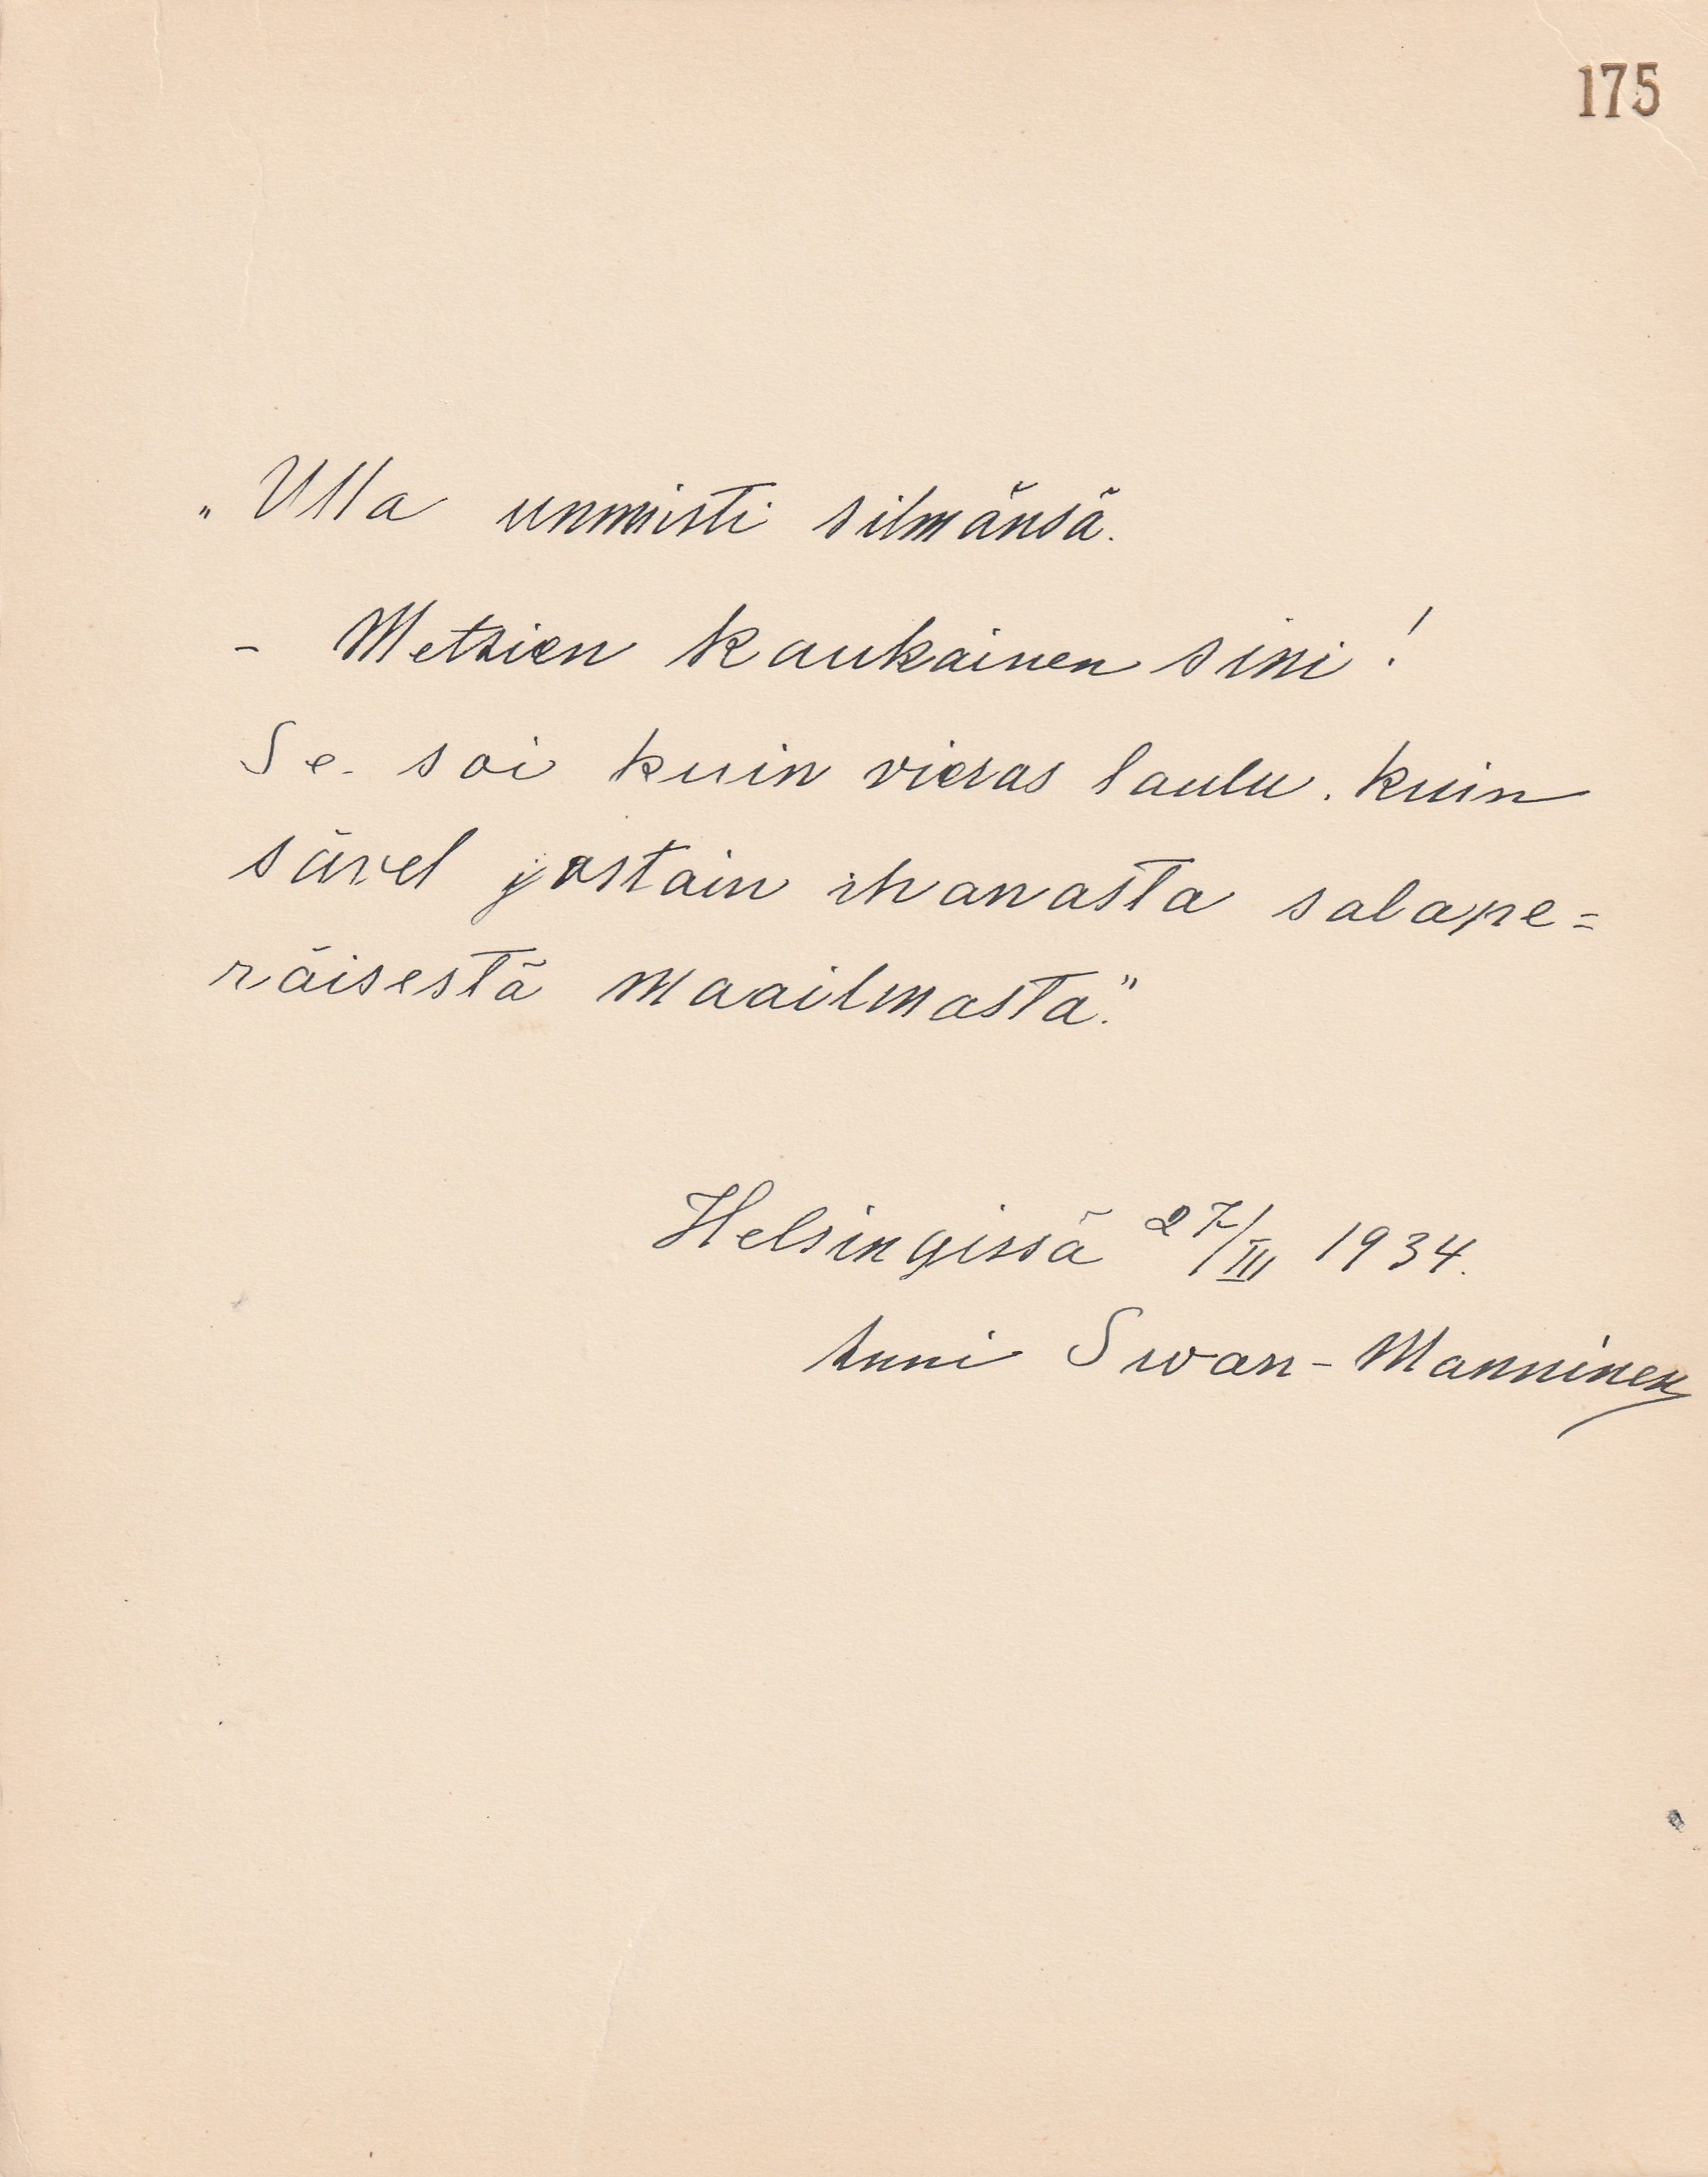 175
„Ulla ummisti silmänsä.
- Metsien kaukainen sini!
Se soi kuin vieras laulu, kuin
sävel jostain ihanasta salape=
räisestä maailmasta."
Helsingissä 27/III 1934.
Anni Swan-Manninen